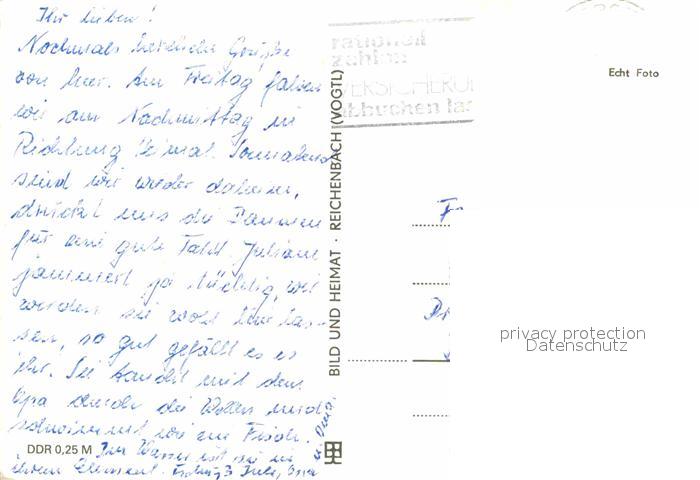 Ihr Lieben!
Nochmals herzliche Grüße
von hier. Am Freitag fahren
wir am Nachmittag in
Richtung Heimat. Sonnabend
sind wir wieder daheim,
drückt uns die Daumen
für eine gute Fahrt. Juliane
jammert ja tüchtig, wir
werden sie wohl hier las-
sen, so gut gefällt es es
ihr. Sie
mit dem
Opa durch die Wellen und
schwimmt wie ein Fisch.
Im Wasser ist sie in
ihrem Element.
rationell
zahlen
VERSICHERU
abbuchen las
Echt Foto
BILD UND HEIMAT · REICHENBACH (VOGTL)
privacy protection
Datenschutz
DDR 0,25 M